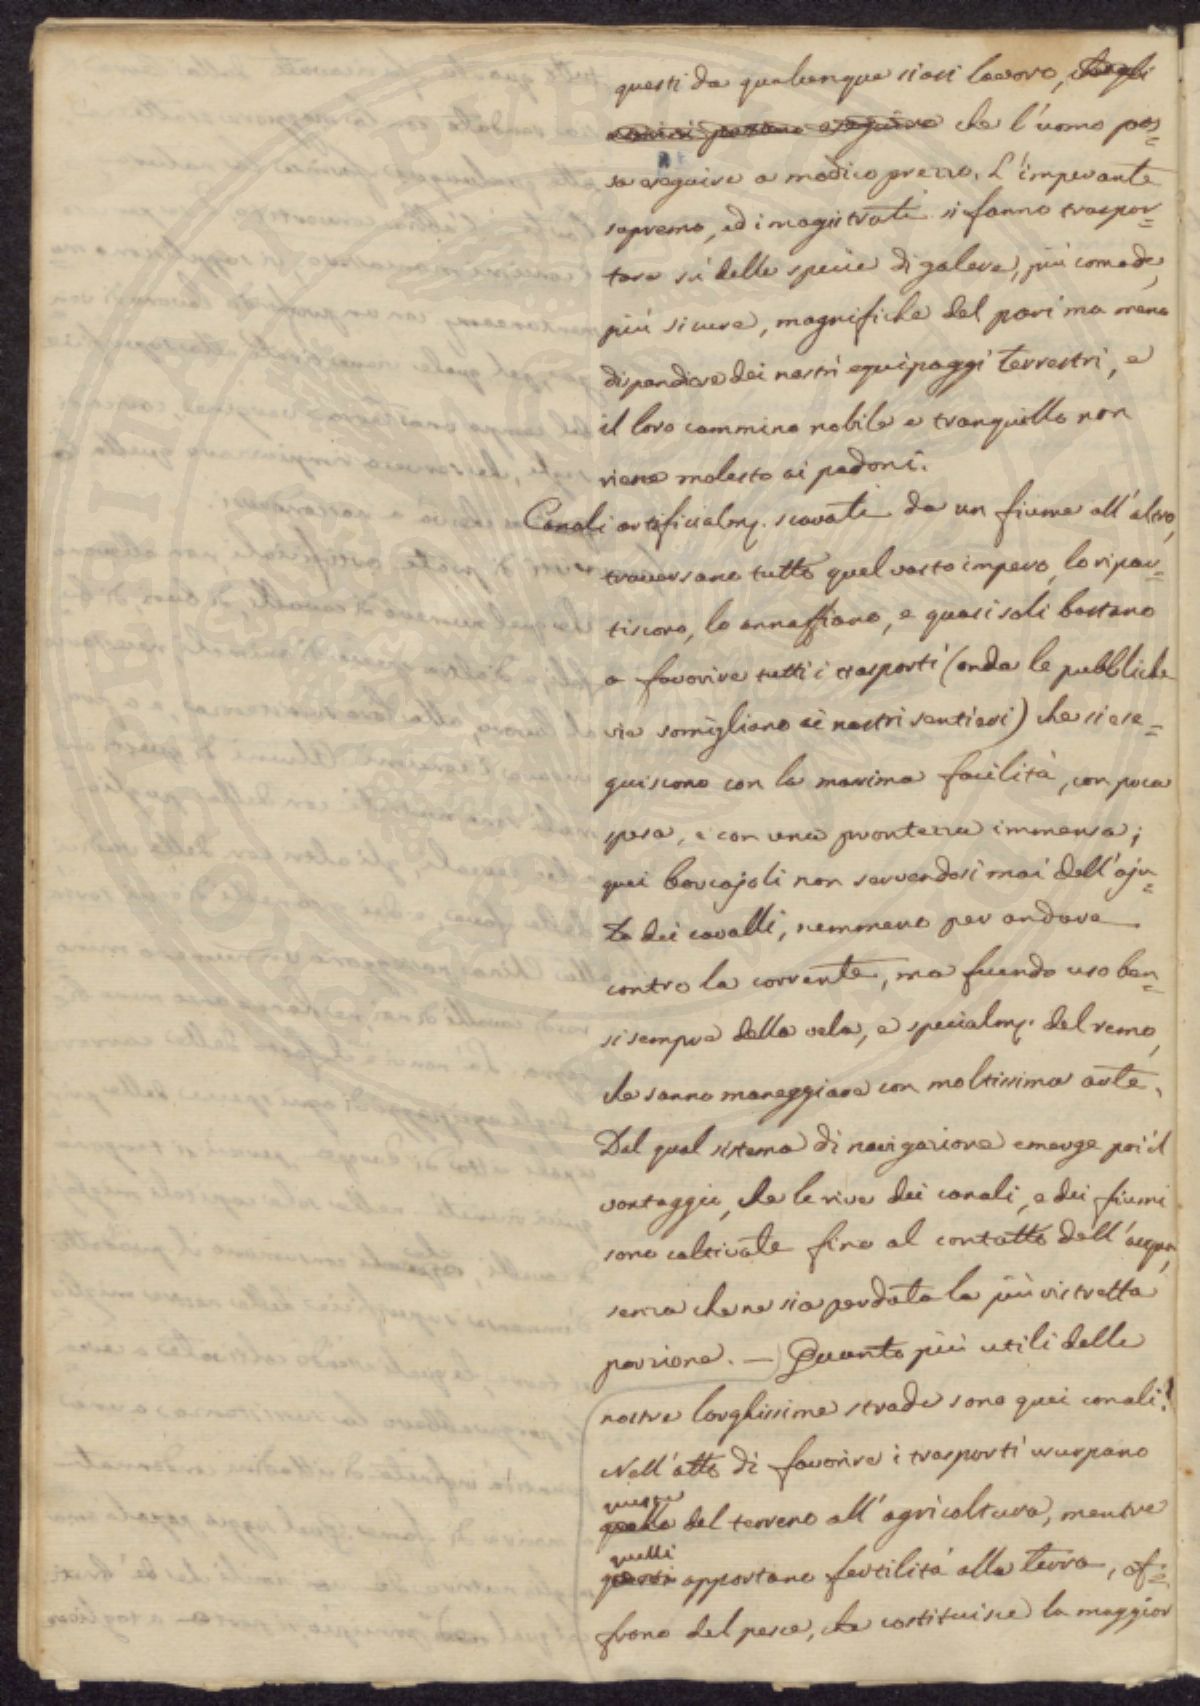 questi da qualunque siasi lavoro, ch'egli
uomini possano eseguire che l'uomo pos=
sa eseguire a modico prezzo. L'imperante
supremo, ed i magistrati si fanno traspor=
tare sù delle specie di galere, più comode,
più sicure, magnifiche del pari ma meno
dispendiose dei nostri equipaggi terrestri, e
il loro cammino nobile e tranquillo non
riesce molesto ai pedoni.
Canali artificialm. scavati da un fiume all'altro,
traversano tutto quel vasto impero, lo ripar=
tiscono, lo annaffiano, e quasi soli bastano
a favorire tutti i trasporti (onde le pubbliche
vie somigliano ai nostri sentieri) che si ese=
guiscono con la massima facilità, con poca
spesa, e con una prontezza immensa;
quei barcajoli non servendosi mai dell'aju=
to dei cavalli, nemmeno per andare
contro la corrente, ma facendo uso ben=
sì sempre della vela, e specialm. del remo,
che sanno maneggiare con moltissima arte.
Dal qual sistema di navigazione emerge poi il
vantaggio, che le rive dei canali, e dei fiumi
sono coltivate fino al contatto dell'acqua,
senza che ne sia perduta la più ristretta
porzione. — Quanto più utili delle
nostre larghissime strade sono quei canali!
Nell'atto di favorire i trasporti usurpano
queste
quelle del terreno all'agricoltura, mentre
quelli
questi apportano fertilità alla terra, of=
frono del pesce, che costituisce la maggior